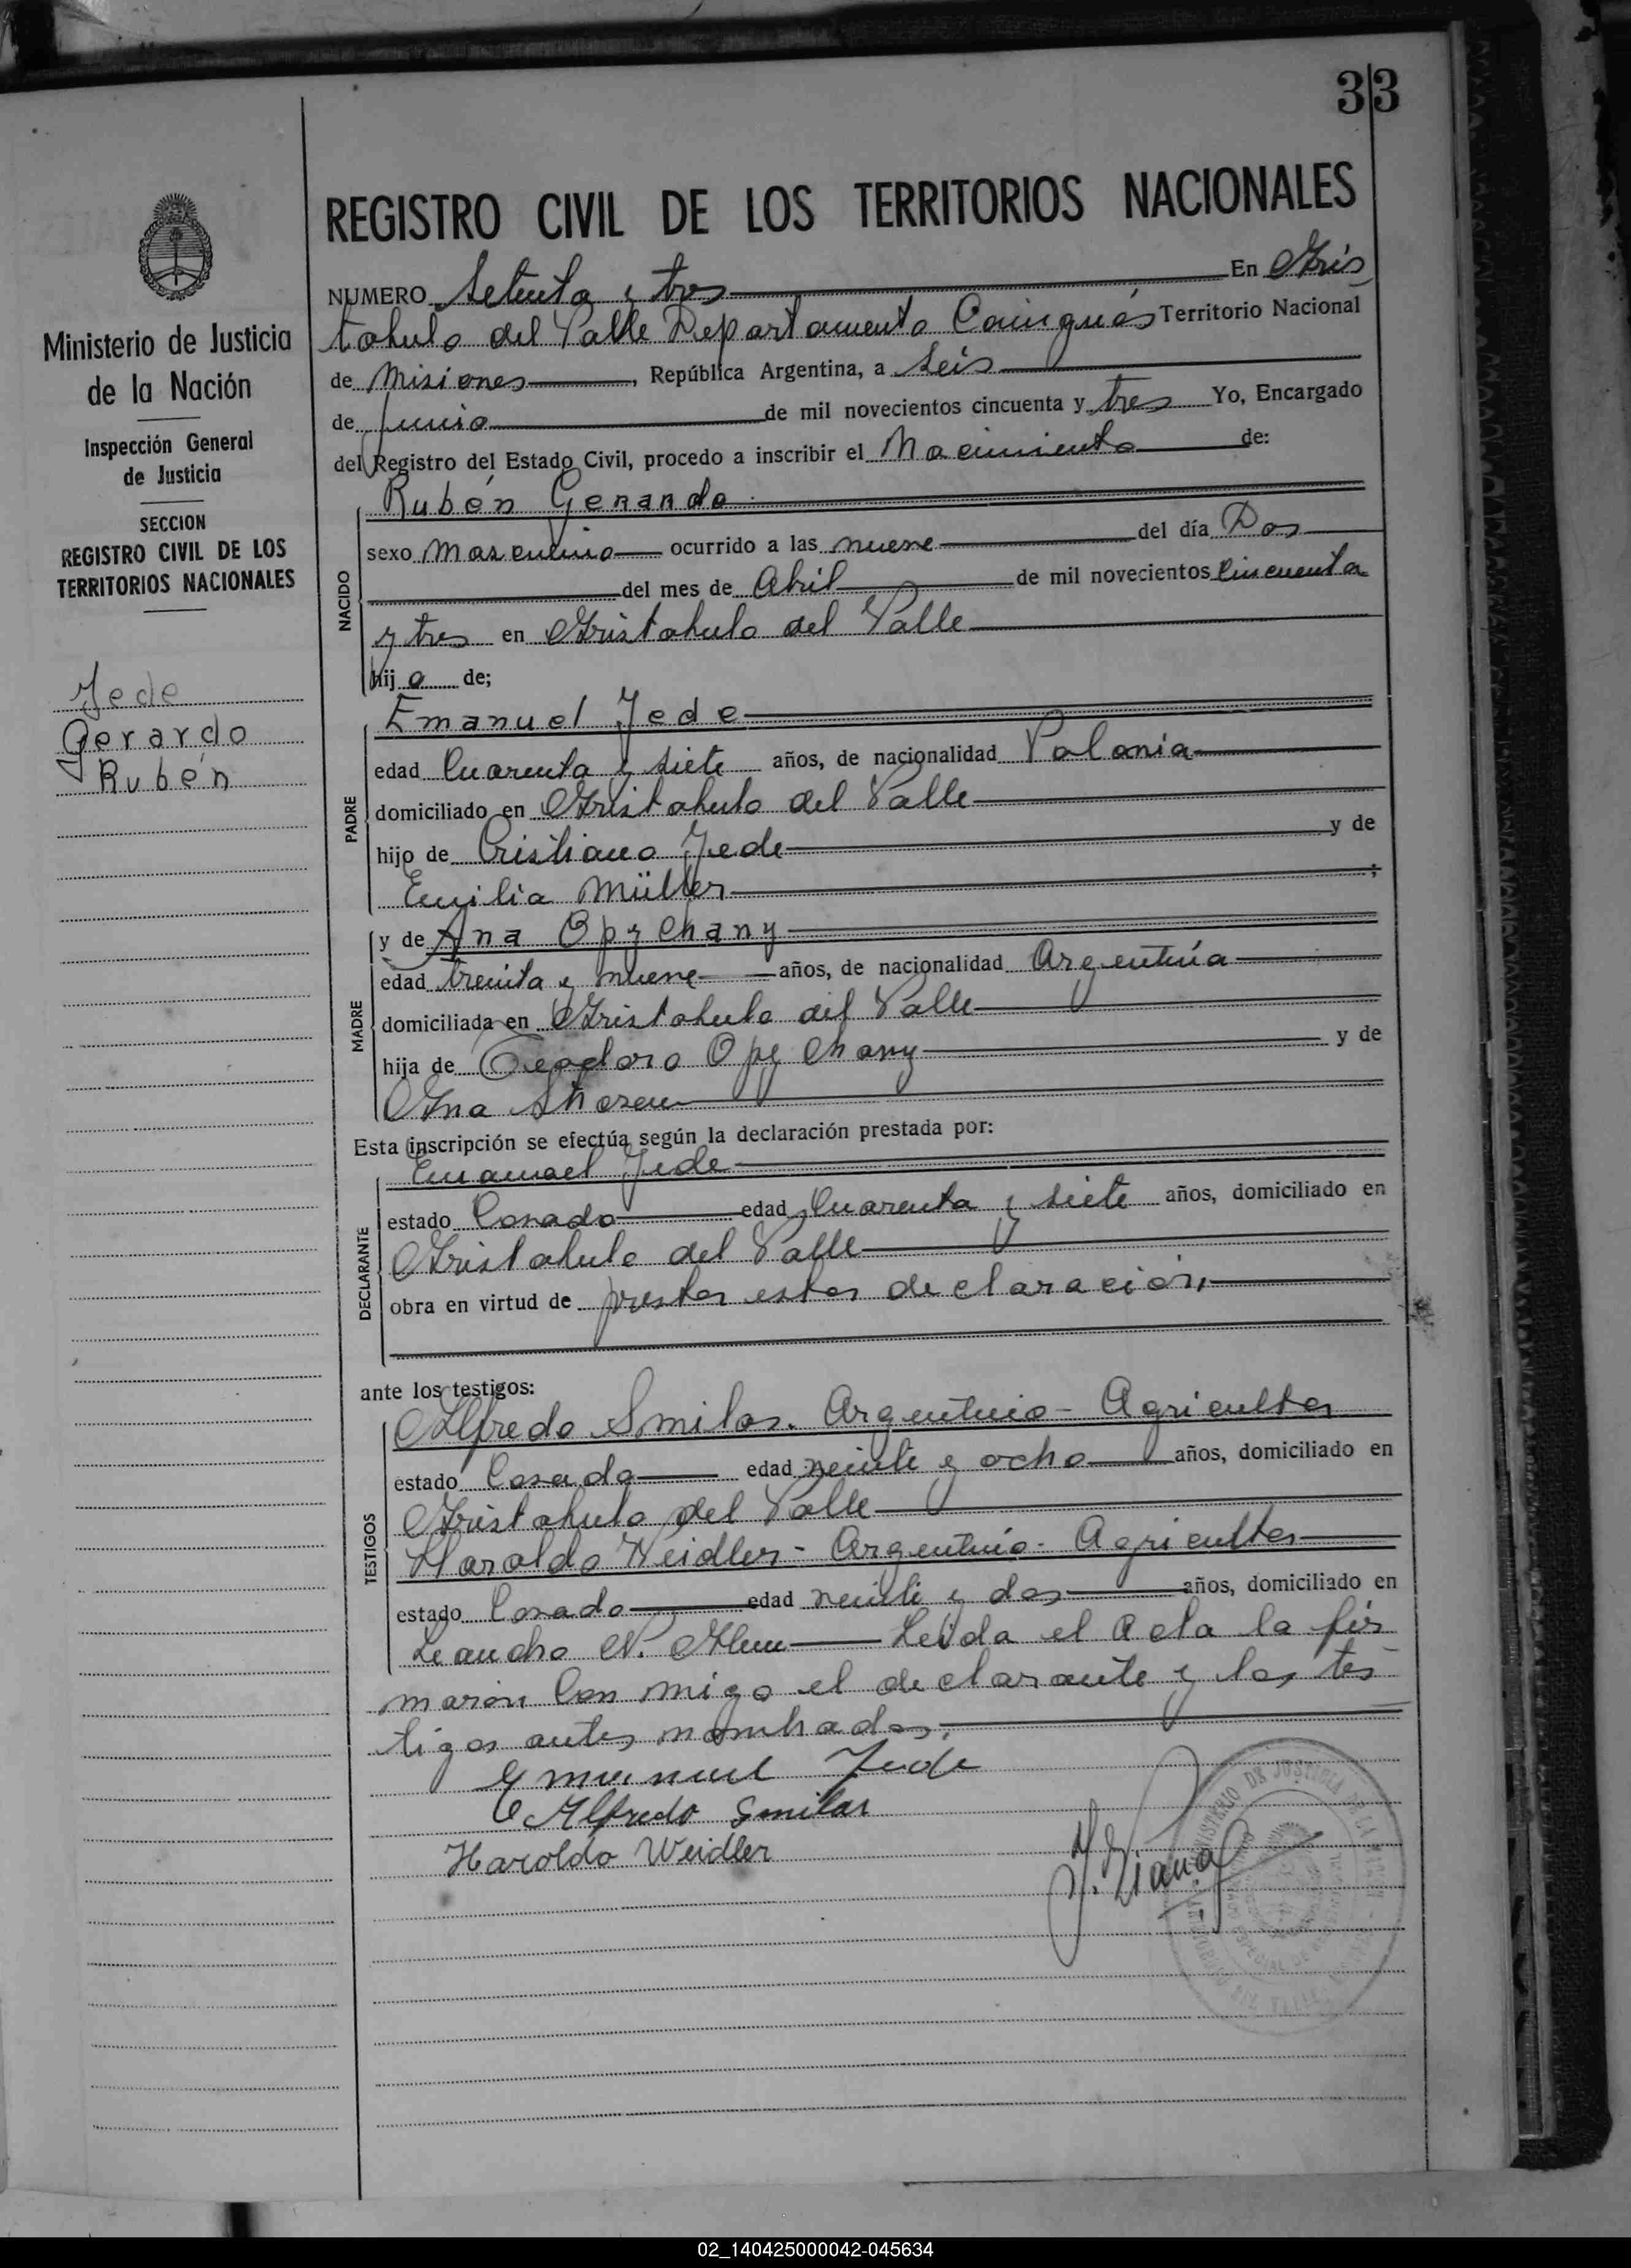 33
REGISTRO CIVIL DE LOS TERRITORIOS NACIONALES
NUMERO Setenta y tres En Aris
tobulo del Valle Departamento Cainguás Territorio Nacional
de Misiones, República Argentina, a seis
de junio de mil novecientos cincuenta y tres Yo, Encargado
del Registro del Estado Civil, procedo a inscribir el Nacimiento de:
Ministerio de Justicia
de la Nación
Inspección General
de Justicia
SECCION
REGISTRO CIVIL DE LOS
TERRITORIOS NACIONALES
Jede
Gerardo
Rubén
NACIDO
Rubén Gerardo
sexo Masculino ocurrido a las nueve del día Dos
del mes de Abril de mil novecientos Cincuenta
y tres en Aristobulo del Valle
hijo de;
PADRE
Emanuel Jede
edad Cuarenta y siete años, de nacionalidad Polonia
domiciliado en Aristobulo del Valle
hijo de Cristiano Jede y de
Emilia Müller;
MADRE
y de Ana Opychany
edad treinta y nueve años, de nacionalidad Argentina
domiciliada en Aristobulo del Valle
hija de Teodoro Opychany y de
Ana
Esta inscripción se efectúa según la declaración prestada por:
DECLARANTE
Emanuel Jede
estado Casado edad Cuarenta y siete años, domiciliado en
Aristobulo del Valle
obra en virtud de prestar esta declaración,
ante los testigos:
TESTIGOS
Alfredo Smilas. Argentino - Agricultor
estado Casado edad veinte y ocho años, domiciliado en
Aristobulo del Valle
Haroldo Weidler - Argentino - Agricultor
estado Casado edad veinte y dos años, domiciliado en
Leandro N. Alem Leída el Acta la fir
maron Con migo el declarante y los tes
tigos antes nombrados.
Emanuel Jede
Alfredo Smilas
Haroldo Weidler
MINISTERIO DE JUSTICIA DE LA
02_140425000042-045634